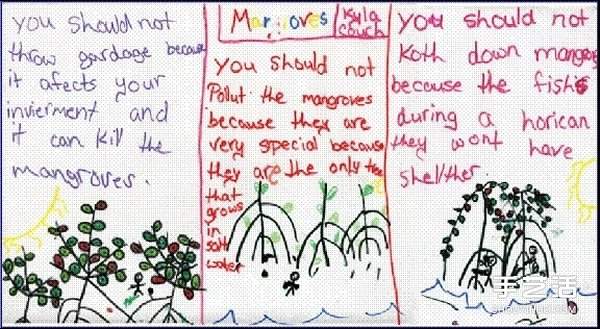 you should not
throw gardage because
it afects your
invierment and
it can kill the
mangroves.
Mangroves
Kyla
Couch
you should not
Pollut the mangroves
because they are
very special because
they are the only tree
that
grows
in
salt
water
you should not
Koth down mangroves
because the fishs
during a horican
they wont have
shellther.
手工活